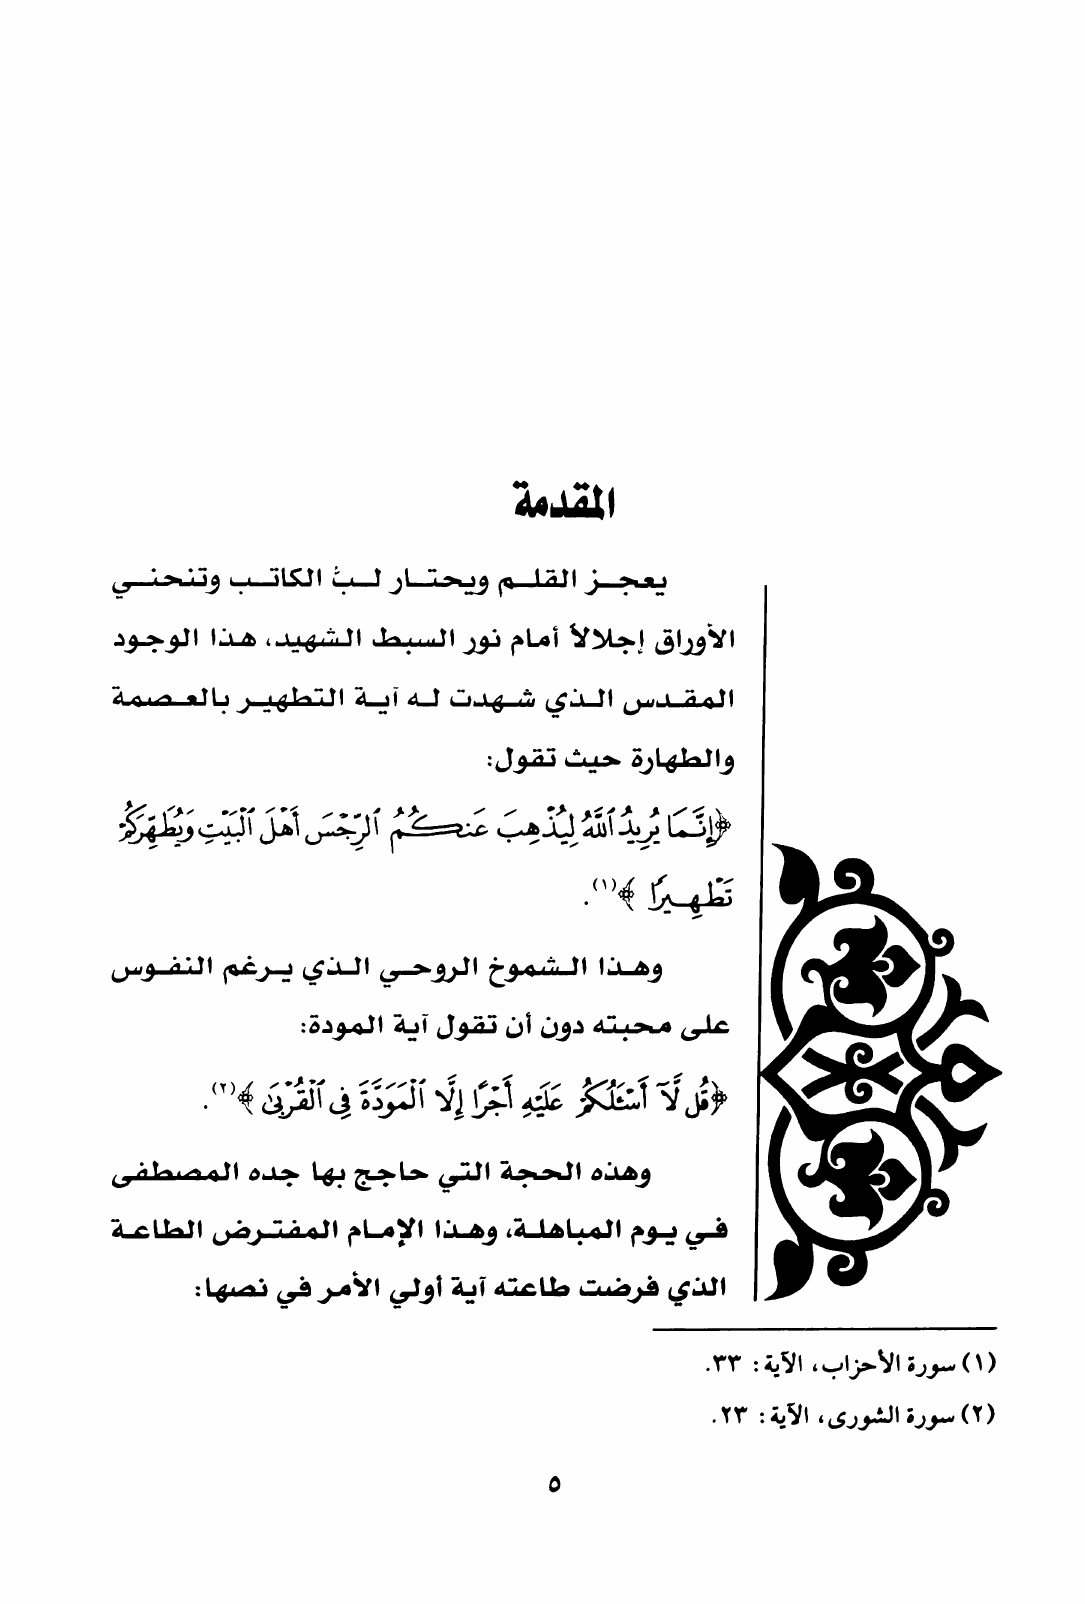 المقدمة
يعجز القلم ويحتار لبُّ الكاتب وتنحني
الأوراق إجلالاً أمام نور السبط الشهيد، هذا الوجود
المقدس الذي شهدت له آية التطهير بالعصمة
والطهارة حيث تقول:
﴿إِنَّمَا يُرِيدُ ٱللَّهُ لِيُذْهِبَ عَنكُمُ ٱلرِّجْسَ أَهْلَ ٱلْبَيْتِ وَيُطَهِّرَكُمْ
تَطْهِيرًا﴾(١).
وهذا الشموخ الروحي الذي يرغم النفوس
على محبته دون أن تقول آية المودة:
﴿قُل لَّآ أَسْـَٔلُكُمْ عَلَيْهِ أَجْرًا إِلَّا ٱلْمَوَدَّةَ فِى ٱلْقُرْبَىٰ﴾(٢).
وهذه الحجة التي حاجج بها جده المصطفى
في يوم المباهلة، وهذا الإمام المفترض الطاعة
الذي فرضت طاعته آية أولي الأمر في نصها:
(١) سورة الأحزاب، الآية: ٣٣.
(٢) سورة الشورى، الآية: ٢٣.
٥